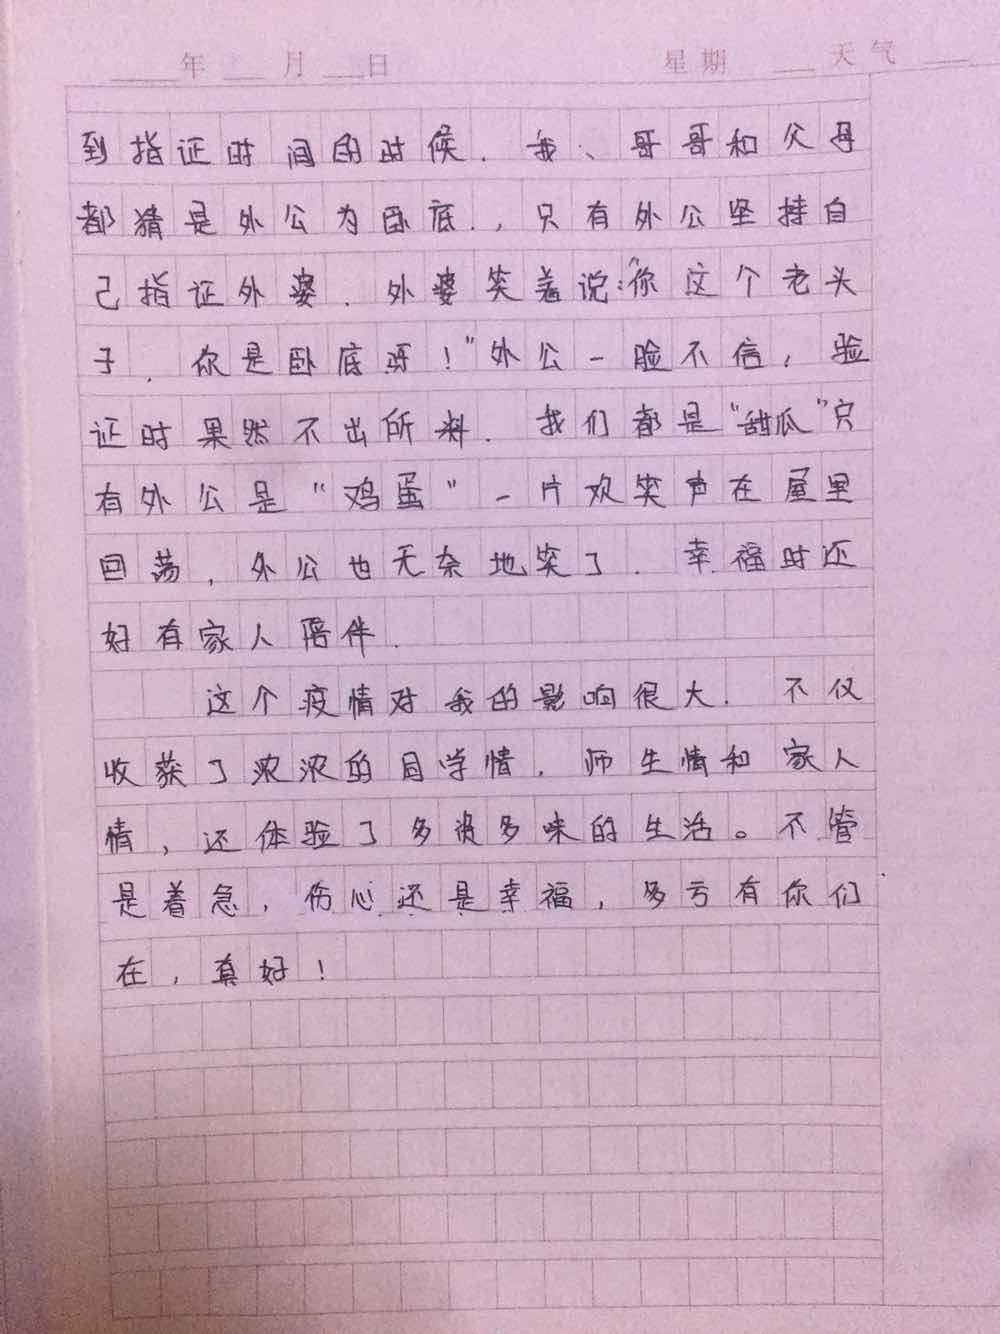 年 月 日 星期 天气
到指证时间的时候.我、哥哥和父母
都猜是外公为卧底.,只有外公坚持自
己指证外婆.外婆笑着说:"你这个老头
子,你是卧底呀!"外公一脸不信,验
证时果然不出所料.我们都是"甜瓜"只
有外公是"鸡蛋"一片欢笑声在屋里
回荡,外公也无奈地笑了.幸福时还
好有家人陪伴.
这个疫情对我的影响很大.不仅
收获了浓浓的同学情.师生情和家人
情,还体验了多姿多味的生活。不管
是着急,伤心还是幸福,多亏有你们
在,真好!